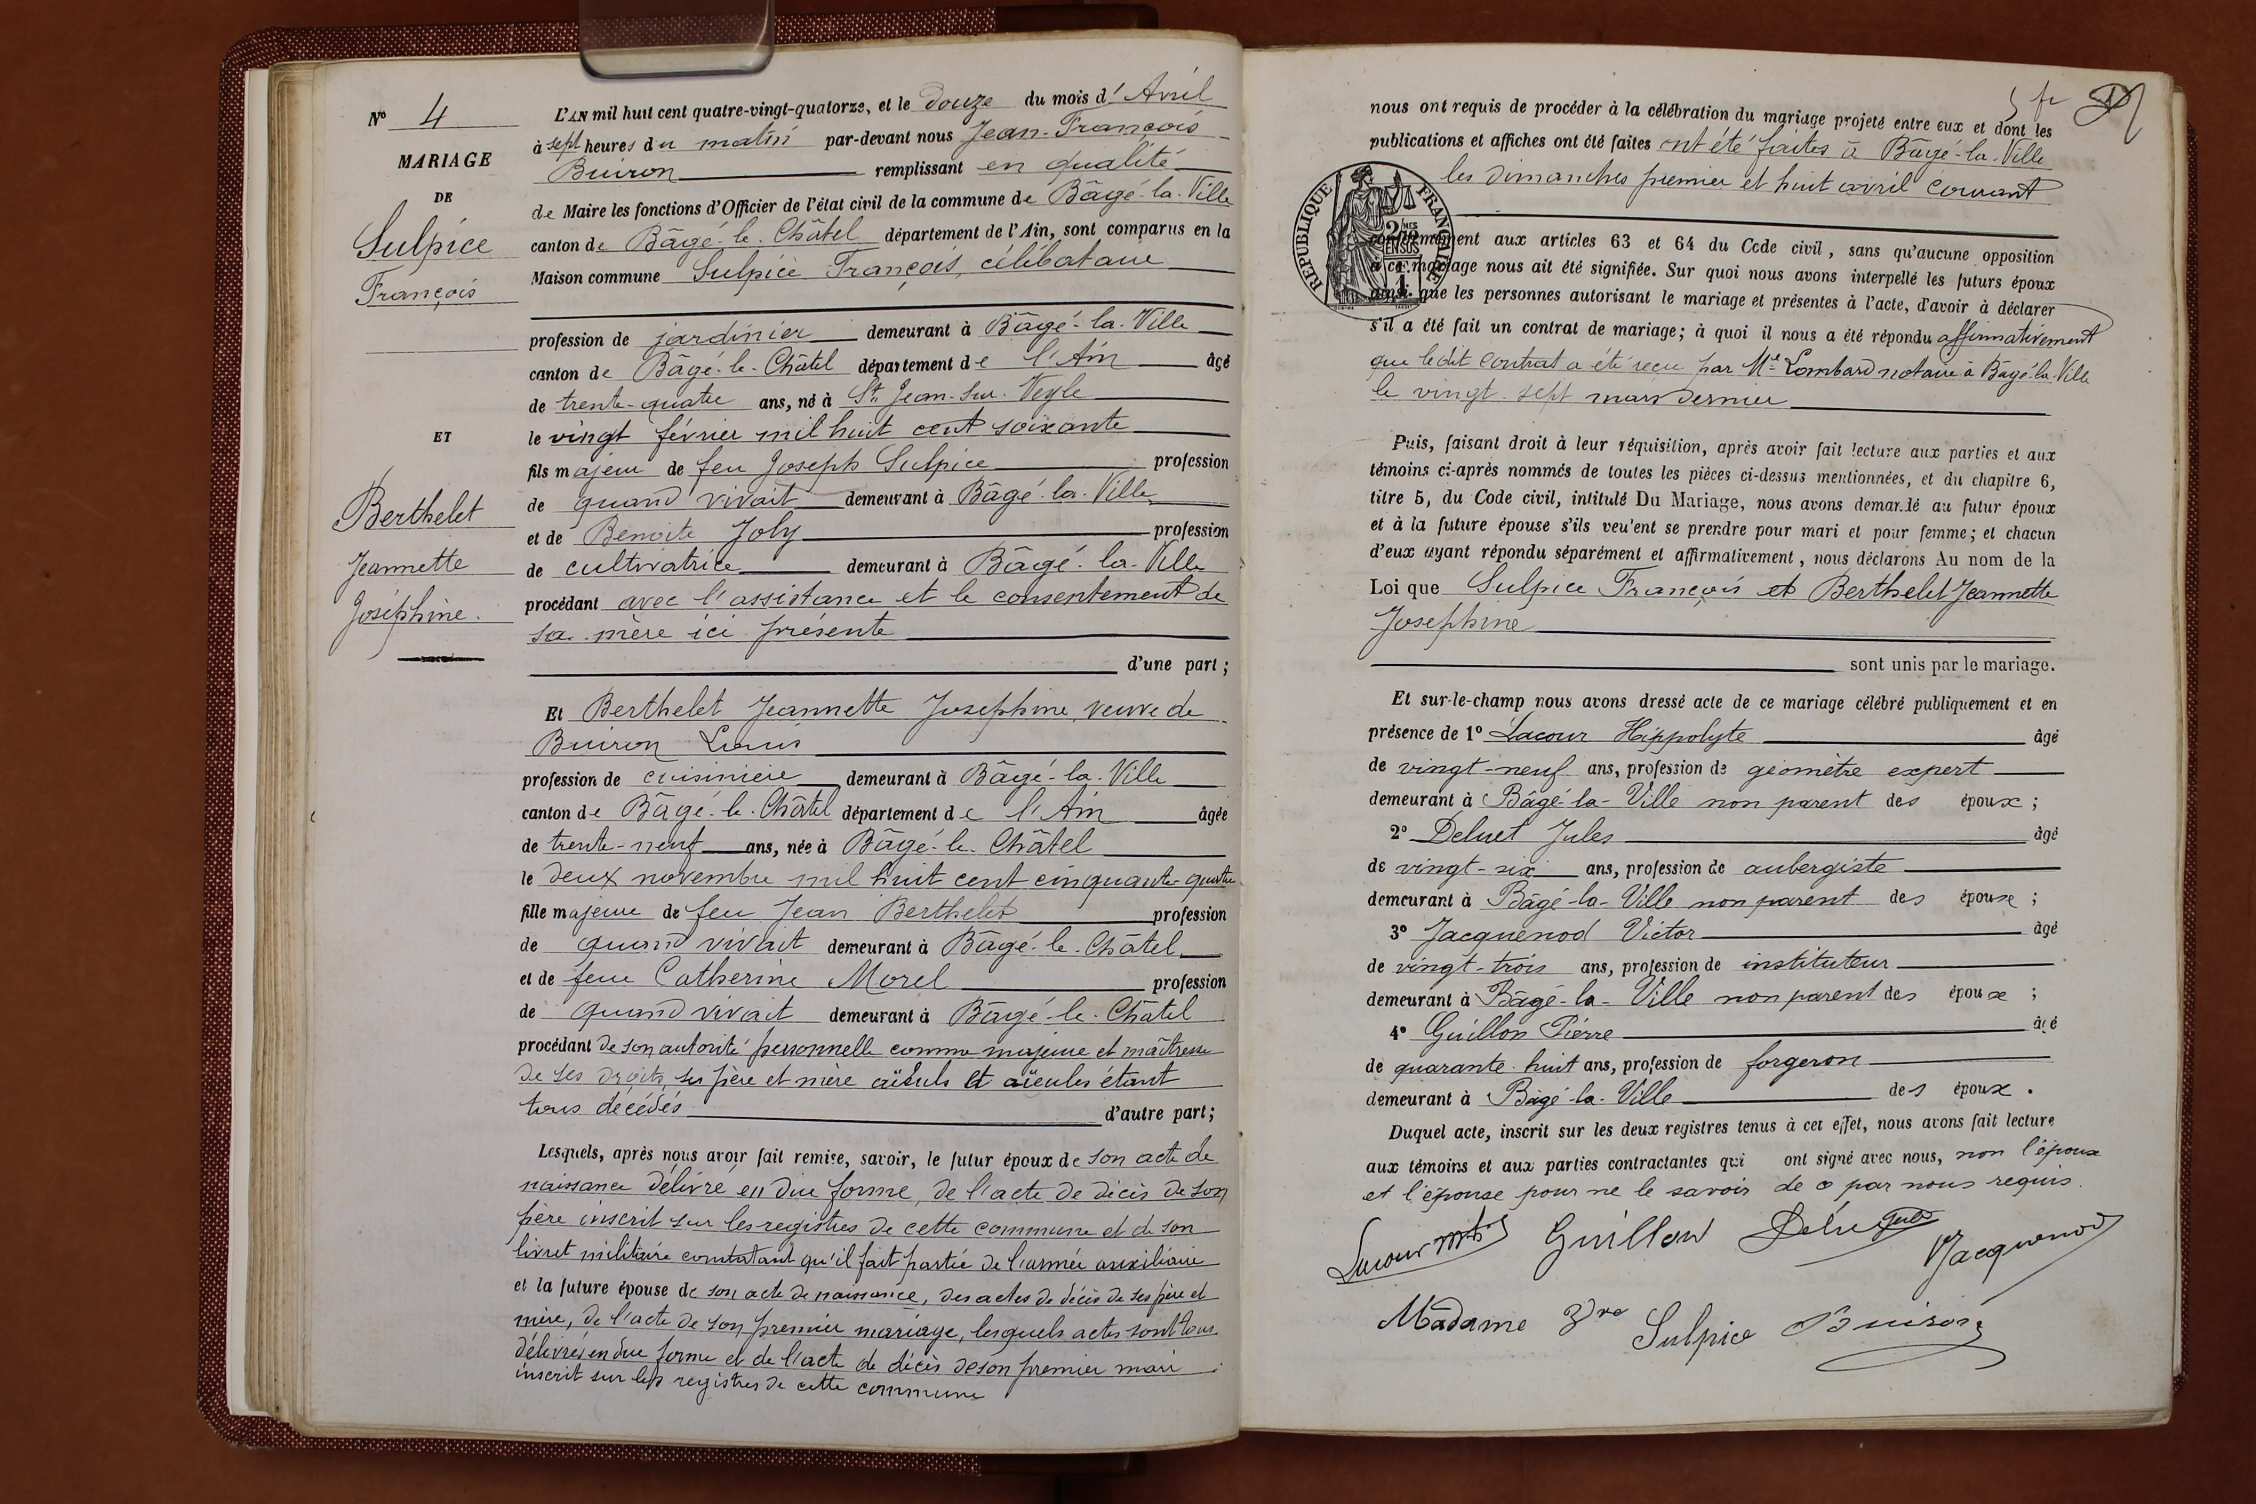 N° 4
MARIAGE
DE
Sulpice
François
ET
Berthelet
Jeannette
Joséphine.
L'AN mil huit cent quatre-vingt-quatorze, et le douze du mois d'Avril
à sept heures du matin par-devant nous Jean-François
Buiron remplissant en qualité
de Maire les fonctions d'Officier de l'état civil de la commune de Bâgé-la-Ville
canton de Bâgé-le-Châtel département de l'Ain, sont comparus en la
Maison commune Sulpice François, célibataire
profession de jardinier demeurant à Bâgé-la-Ville
canton de Bâgé-le-Châtel département de l'Ain âgé
de trente-quatre ans, né à St Jean-sur-Veyle
le vingt février mil huit cent soixante
fils majeur de feu Joseph Sulpice profession
de quand vivait demeurant à Bâgé-la-Ville
et de Benoite Joly profession
de cultivatrice demeurant à Bâgé-la-Ville
procédant avec l'assistance et le consentement de
sa mère ici présente
d'une part;
Et Berthelet Jeannette Josephine, veuve de
Buiron Louis
profession de cuisinière demeurant à Bâgé-la-Ville
canton de Bâgé-le-Châtel département de l'Ain âgée
de trente-neuf ans, née à Bâgé-le-Châtel
le deux novembre mil huit cent cinquante-quatre
fille majeure de feu Jean Berthelet profession
de quand vivait demeurant à Bâgé-le-Châtel
et de feue Catherine Morel profession
de quand vivait demeurant à Bâgé-le-Châtel
procédant de son autorité personnelle comme majeure et maîtresse
de ses droits, ses père et mère aïeuls et aïeules étant
tous décédés d'autre part;
Lesquels, après nous avoir fait remise, savoir, le futur époux de son acte de
naissance délivré en due forme, de l'acte de décès de son
père inscrit sur les registres de cette commune et de son
livret militaire constatant qu'il fait partie de l'armée auxiliaire
et la future épouse de son acte de naissance, des actes de décès de ses père et
mère, de l'acte de son premier mariage, lesquels actes sont tous
délivrés en due forme et de l'acte de décès de son premier mari
inscrit sur les registres de cette commune
5 fr
nous ont requis de procéder à la célébration du mariage projeté entre eux et dont les
publications et affiches ont été faites ont été faites à Bâgé-la-Ville
les dimanches premier et huit avril courant
REPUBLIQUE FRANÇAISE
conformément aux articles 63 et 64 du Code civil, sans qu'aucune opposition
à ce mariage nous ait été signifiée. Sur quoi nous avons interpellé les futurs époux
ainsi que les personnes autorisant le mariage et présentes à l'acte, d'avoir à déclarer
s'il a été fait un contrat de mariage; à quoi il nous a été répondu affirmativement
que ledit contrat a été reçu par Me Lombard notaire à Bâgé-la-Ville
le vingt-sept mars dernier
Puis, faisant droit à leur réquisition, après avoir fait lecture aux parties et aux
témoins ci-après nommés de toutes les pièces ci-dessus mentionnées, et du chapitre 6,
titre 5, du Code civil, intitulé Du Mariage, nous avons demandé au futur époux
et à la future épouse s'ils veulent se prendre pour mari et pour femme; et chacun
d'eux ayant répondu séparément et affirmativement, nous déclarons Au nom de la
Loi que Sulpice François et Berthelet Jeannette
Josephine
sont unis par le mariage.
Et sur-le-champ nous avons dressé acte de ce mariage célébré publiquement et en
présence de 1° Lacour Hippolyte âgé
de vingt-neuf ans, profession de géomètre expert
demeurant à Bâgé-la-Ville non parent des époux;
2° Deluet Jules âgé
de vingt-six ans, profession de aubergiste
demeurant à Bâgé-la-Ville non parent des époux;
3° Jacquenod Victor âgé
de vingt-trois ans, profession de instituteur
demeurant à Bâgé-la-Ville non parent des époux;
4° Guillon Pierre âgé
de quarante-huit ans, profession de forgeron
demeurant à Bâgé-la-Ville des époux.
Duquel acte, inscrit sur les deux registres tenus à cet effet, nous avons fait lecture
aux témoins et aux parties contractantes qui ont signé avec nous, non l'époux
et l'épouse pour ne le savoir de ce par nous requis.
Lacour Guillon Deluet Jules Jacquenod
Madame Sulpice Buiron